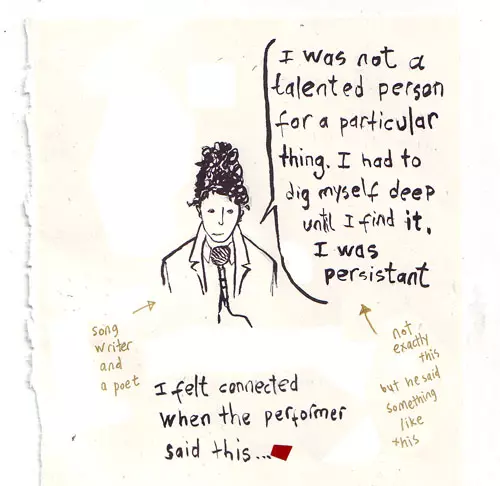 I was not a
talented person
for a particular
thing. I had to
dig myself deep
until I find it.
I was
persistant
song
writer
and
a poet
not
exactly
this
but he said
something
like
this
I felt connected
when the performer
said this...